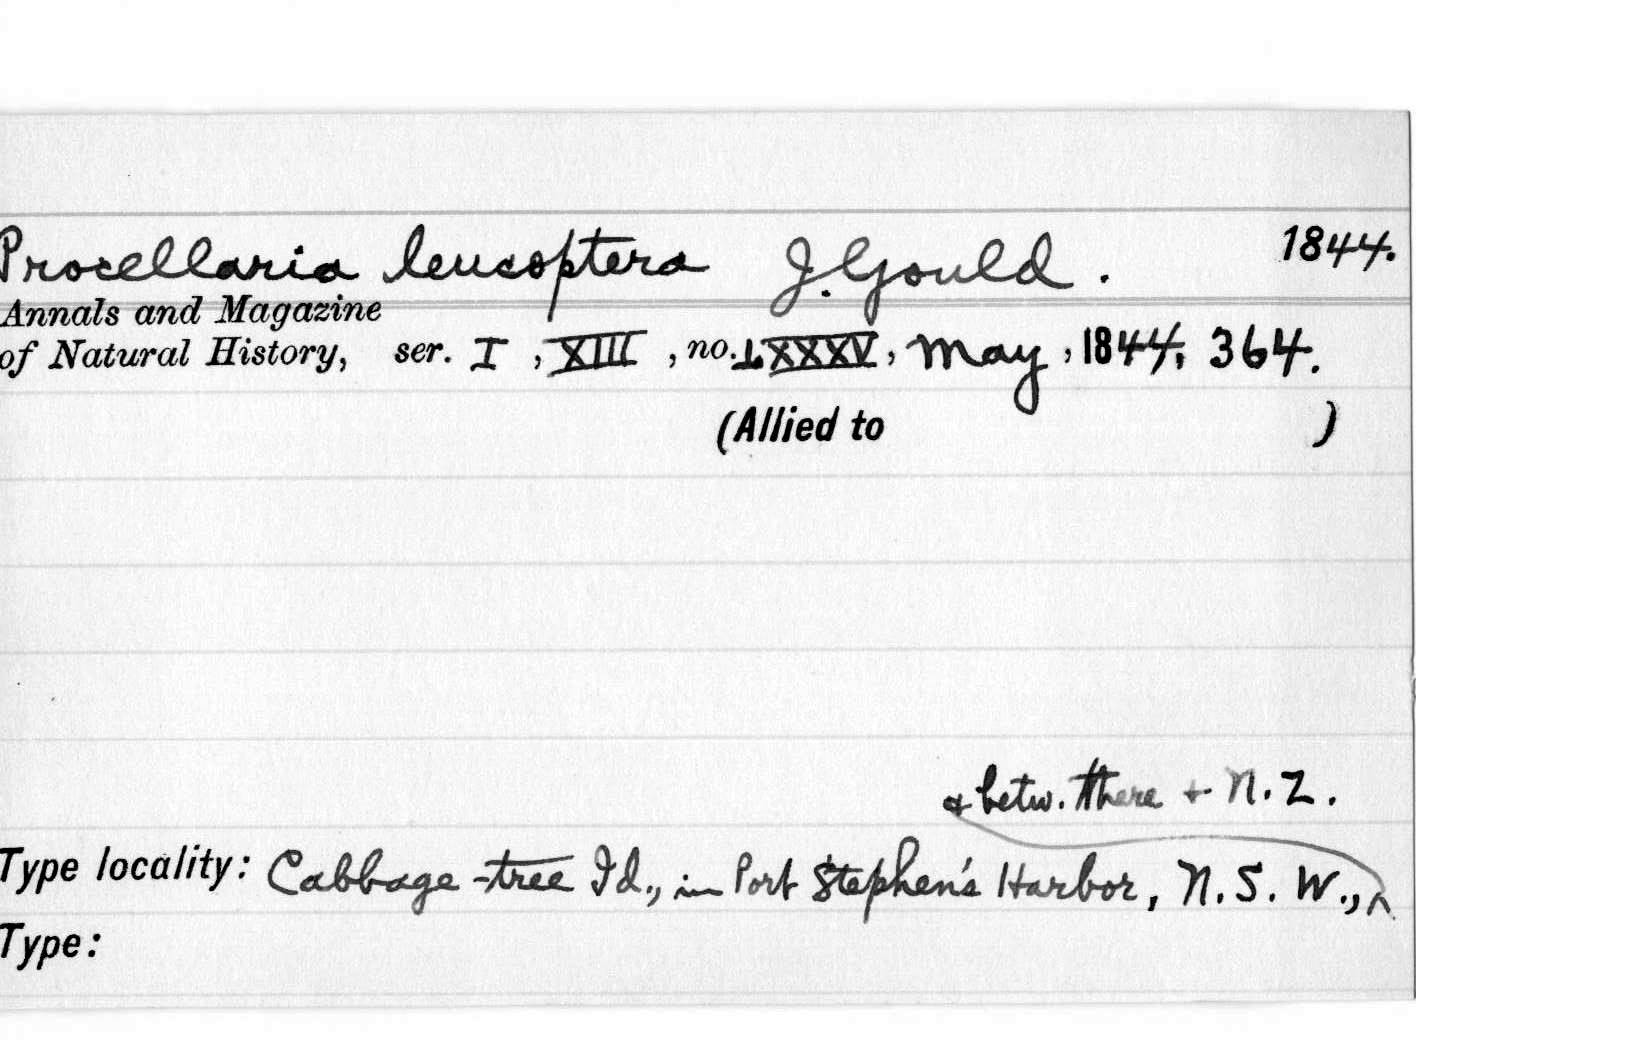 Procellaria leucoptera J. Gould. 1844.
Annals and Magazine
of Natural History, ser. I, XIII, no. LXXXV, May, 1844, 364.
(Allied to )
& betw. there + N.Z.
Type locality: Cabbage-tree Id., in Port Stephen's Harbor, N.S.W., ^
Type: